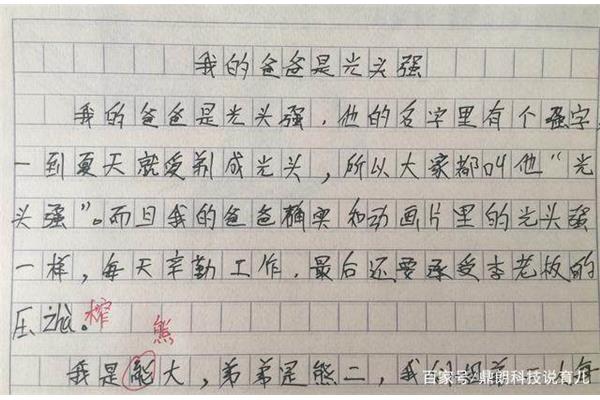 我的爸爸是光头强
我的爸爸是光头强,他的名字里有个强字,
一到夏天就爱剃成光头,所以大家都叫他“光
头强”。而且我的爸爸确实和动画片里的光头强
一样,每天辛勤工作,最后还要承受李老板的
压zhà。榨
熊
我是能大,弟弟是熊二,我们
百家号/鼎朗科技说育儿